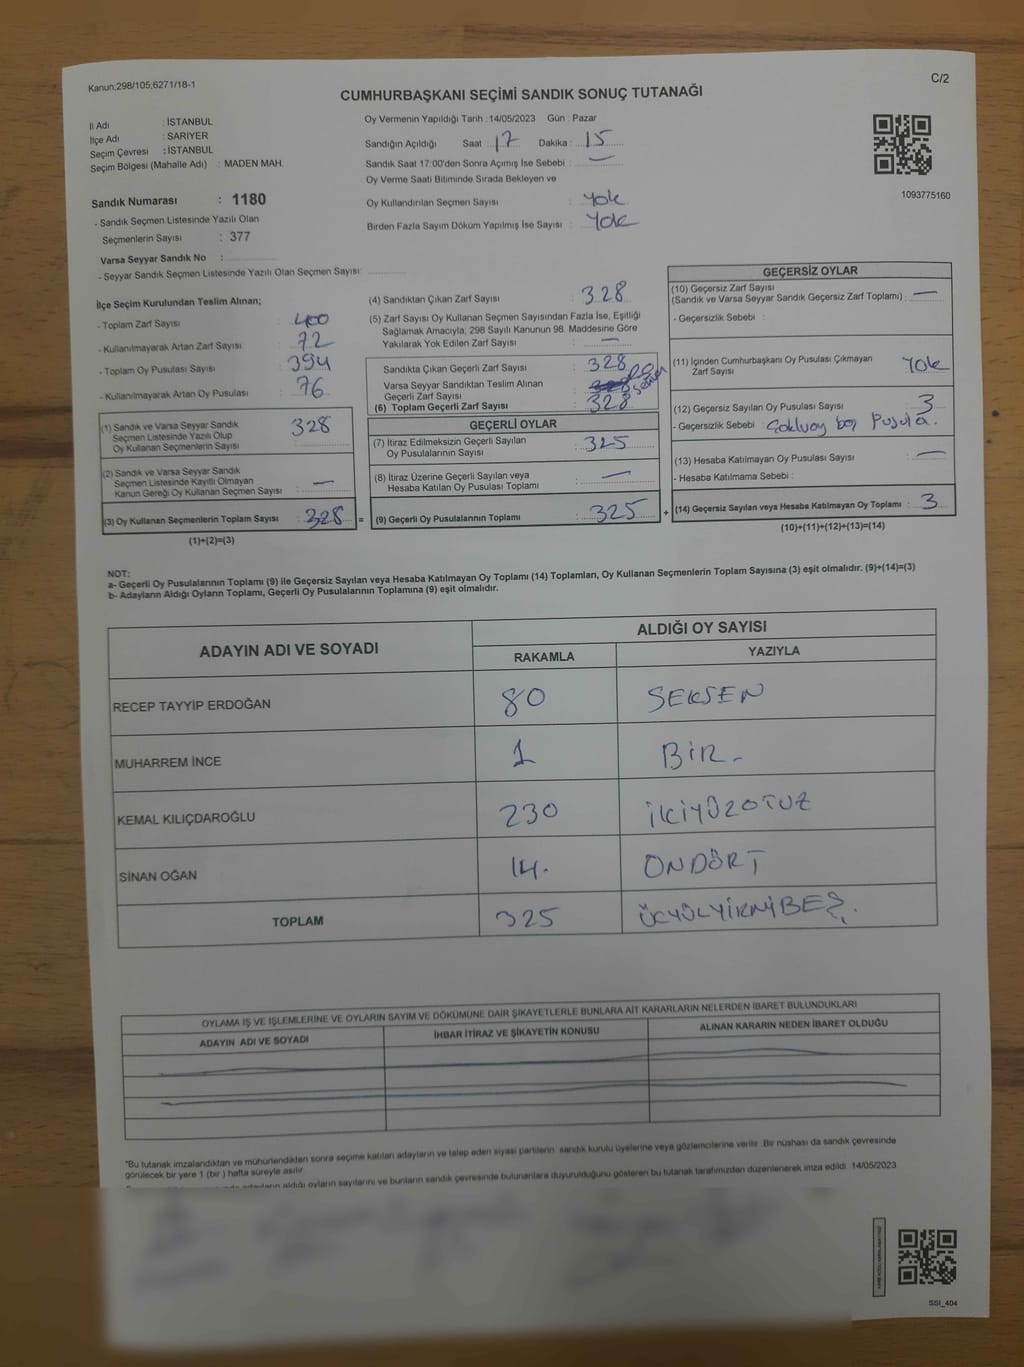 Kanun;298/105;6271/18-1
C/2
CUMHURBAŞKANI SEÇİMİ SANDIK SONUÇ TUTANAĞI
İl Adı : İSTANBUL
İlçe Adı : SARIYER
Seçim Çevresi : İSTANBUL
Seçim Bölgesi (Mahalle Adı) : MADEN MAH.
Oy Vermenin Yapıldığı Tarih : 14/05/2023 Gün : Pazar
Sandığın Açıldığı Saat : 17 Dakika : 15
Sandık Saat 17:00'den Sonra Açımış İse Sebebi : —
Oy Verme Saati Bitiminde Sırada Bekleyen ve
Oy Kullandırılan Seçmen Sayısı : Yok
Birden Fazla Sayım Döküm Yapılmış İse Sayısı : Yok
1093775160
Sandık Numarası : 1180
- Sandık Seçmen Listesinde Yazılı Olan
Seçmenlerin Sayısı : 377
Varsa Seyyar Sandık No :
- Seyyar Sandık Seçmen Listesinde Yazılı Olan Seçmen Sayısı:
İlçe Seçim Kurulundan Teslim Alınan;
- Toplam Zarf Sayısı : 400
- Kullanılmayarak Artan Zarf Sayısı : 72
- Toplam Oy Pusulası Sayısı : 394
- Kullanılmayarak Artan Oy Pusulası : 76
(1) Sandık ve Varsa Seyyar Sandık
Seçmen Listesinde Yazılı Olup
Oy Kullanan Seçmenlerin Sayısı : 328
(2) Sandık ve Varsa Seyyar Sandık
Seçmen Listesinde Kayıtlı Olmayan
Kanun Gereği Oy Kullanan Seçmen Sayısı : —
(3) Oy Kullanan Seçmenlerin Toplam Sayısı : 328 =
(1)+(2)=(3)
(4) Sandıktan Çıkan Zarf Sayısı : 328
(5) Zarf Sayısı Oy Kullanan Seçmen Sayısından Fazla İse, Eşitliği
Sağlamak Amacıyla; 298 Sayılı Kanunun 98. Maddesine Göre
Yakılarak Yok Edilen Zarf Sayısı : —
Sandıkta Çıkan Geçerli Zarf Sayısı : 328
Varsa Seyyar Sandıktan Teslim Alınan
Geçerli Zarf Sayısı :
(6) Toplam Geçerli Zarf Sayısı : 328
GEÇERLİ OYLAR
(7) İtiraz Edilmeksizin Geçerli Sayılan
Oy Pusulalarının Sayısı : 325
(8) İtiraz Üzerine Geçerli Sayılan veya
Hesaba Katılan Oy Pusulası Toplamı : —
(9) Geçerli Oy Pusulalarının Toplamı : 325 +
GEÇERSİZ OYLAR
(10) Geçersiz Zarf Sayısı
(Sandık ve Varsa Seyyar Sandık Geçersiz Zarf Toplamı) : —
- Geçersizlik Sebebi :
(11) İçinden Cumhurbaşkanı Oy Pusulası Çıkmayan
Zarf Sayısı : Yok
(12) Geçersiz Sayılan Oy Pusulası Sayısı : 3
- Geçersizlik Sebebi : Pusula.
(13) Hesaba Katılmayan Oy Pusulası Sayısı : —
- Hesaba Katılmama Sebebi :
(14) Geçersiz Sayılan veya Hesaba Katılmayan Oy Toplamı : 3
(10)+(11)+(12)+(13)=(14)
NOT:
a- Geçerli Oy Pusulalarının Toplamı (9) ile Geçersiz Sayılan veya Hesaba Katılmayan Oy Toplamı (14) Toplamları, Oy Kullanan Seçmenlerin Toplam Sayısına (3) eşit olmalıdır. (9)+(14)=(3)
b- Adayların Aldığı Oyların Toplamı, Geçerli Oy Pusulalarının Toplamına (9) eşit olmalıdır.
ADAYIN ADI VE SOYADI ALDIĞI OY SAYISI
RAKAMLA YAZIYLA
RECEP TAYYİP ERDOĞAN 80 SEKSEN
MUHARREM İNCE 1 BİR -
KEMAL KILIÇDAROĞLU 230 İKİYÜZOTUZ
SİNAN OĞAN 14. ONDÖRT
TOPLAM 325 ÜÇYÜZYİRMİBEŞ.
OYLAMA İŞ VE İŞLEMLERİNE VE OYLARIN SAYIM VE DÖKÜMÜNE DAİR ŞİKAYETLERLE BUNLARA AİT KARARLARIN NELERDEN İBARET BULUNDUKLARI
ADAYIN ADI VE SOYADI İHBAR İTİRAZ VE ŞİKAYETİN KONUSU ALINAN KARARIN NEDEN İBARET OLDUĞU
*Bu tutanak imzalandıktan ve mühürlendikten sonra seçime katılan adayların ve talep eden siyasi partilerin sandık kurulu üyelerine veya gözlemcilerine verilir. Bir nüshası da sandık çevresinde
görülecek bir yere 1 (bir) hafta süreyle asılır.
adayların aldığı oyların sayılarını ve bunların sandık çevresinde bulunanlara duyurulduğunu gösteren bu tutanak tarafımızdan düzenlenerek imza edildi. 14/05/2023
SSI_404